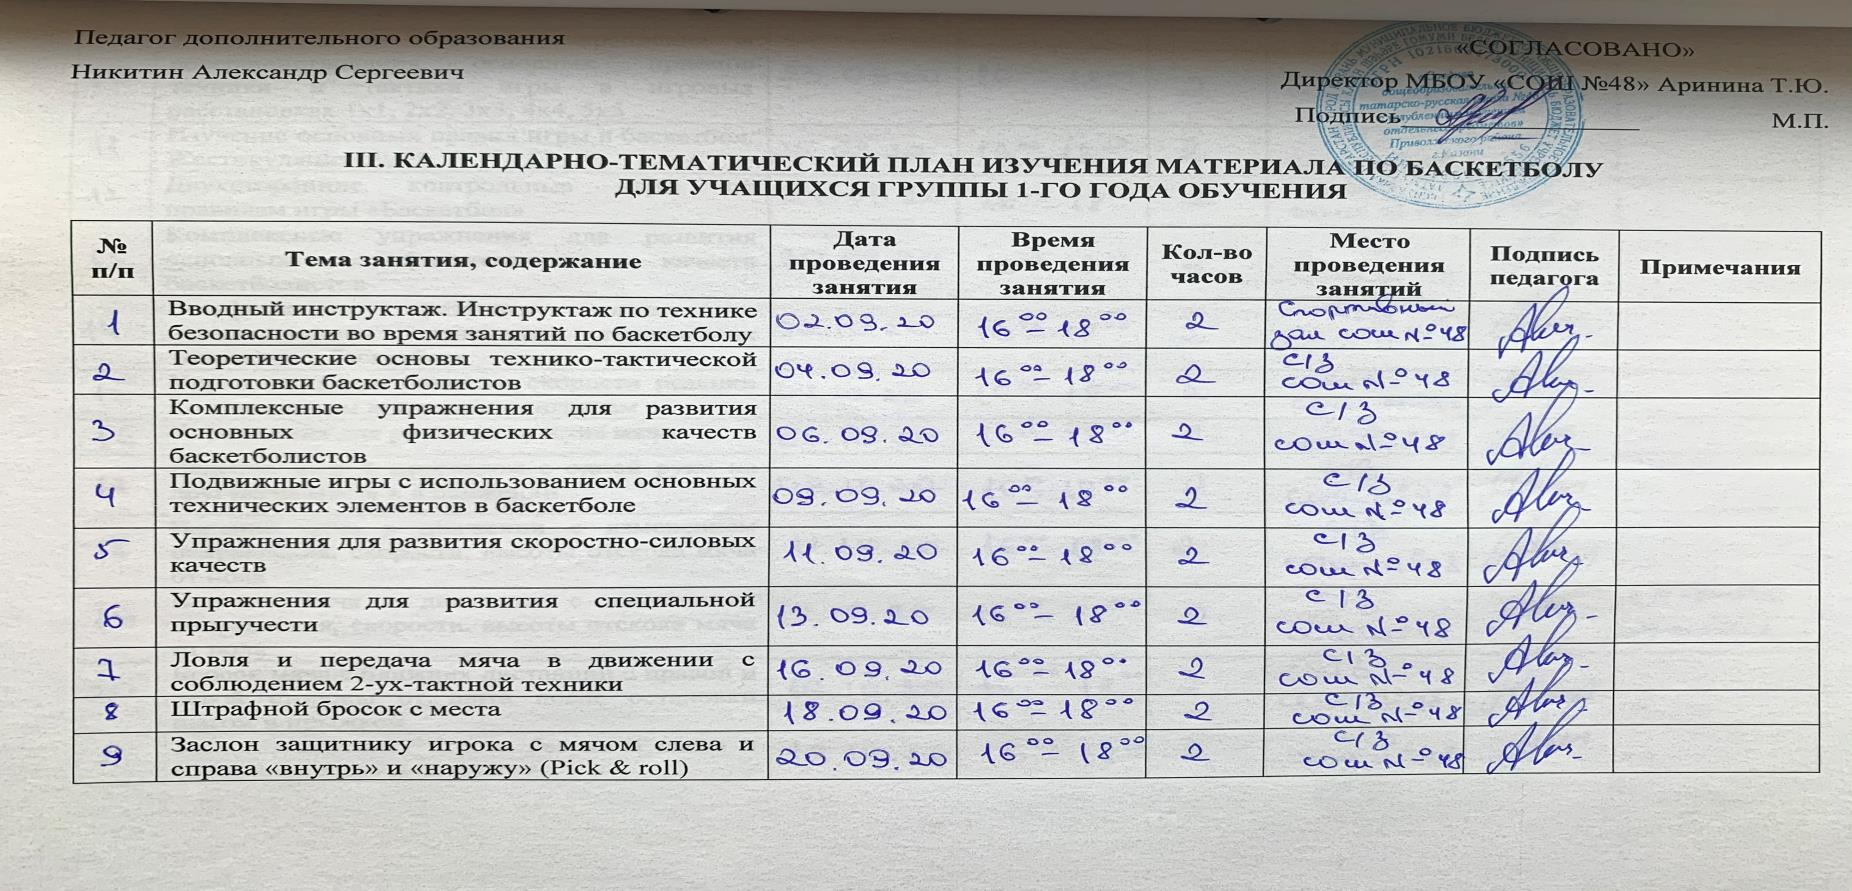 Педагог дополнительного образования
«СОГЛАСОВАНО»
Никитин Александр Сергеевич
Директор МБОУ «СОШ №48» Аринина Т.Ю.
Подпись М.П.
III. КАЛЕНДАРНО-ТЕМАТИЧЕСКИЙ ПЛАН ИЗУЧЕНИЯ МАТЕРИАЛА ПО БАСКЕТБОЛУ
ДЛЯ УЧАЩИХСЯ ГРУППЫ 1-ГО ГОДА ОБУЧЕНИЯ
№ п/п
Тема занятия, содержание
Дата проведения занятия
Время проведения занятия
Кол-во часов
Место проведения занятий
Подпись педагога
Примечания
1
Вводный инструктаж. Инструктаж по технике
безопасности во время занятий по баскетболу
02.09.20
16⁰⁰–18⁰⁰
2
Спортивный
зал сош №48
2
Теоретические основы технико-тактической
подготовки баскетболистов
04.09.20
16⁰⁰–18⁰⁰
2
С/З
сош №48
3
Комплексные упражнения для развития
основных физических качеств
баскетболистов
06.09.20
16⁰⁰–18⁰⁰
2
С/З
сош №48
4
Подвижные игры с использованием основных
технических элементов в баскетболе
09.09.20
16⁰⁰–18⁰⁰
2
С/З
сош №48
5
Упражнения для развития скоростно-силовых
качеств
11.09.20
16⁰⁰–18⁰⁰
2
С/З
сош №48
6
Упражнения для развития специальной
прыгучести
13.09.20
16⁰⁰–18⁰⁰
2
С/З
сош №48
7
Ловля и передача мяча в движении с
соблюдением 2-ух-тактной техники
16.09.20
16⁰⁰–18⁰⁰
2
С/З
сош №48
8
Штрафной бросок с места
18.09.20
16⁰⁰–18⁰⁰
2
С/З
сош №48
9
Заслон защитнику игрока с мячом слева и
справа «внутрь» и «наружу» (Pick & roll)
20.09.20
16⁰⁰–18⁰⁰
2
С/З
сош №48